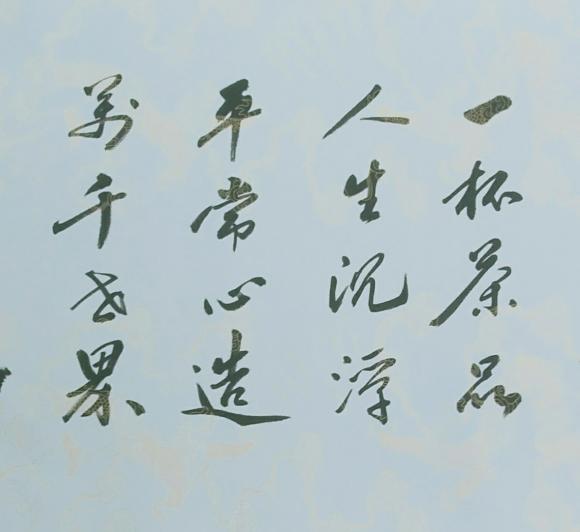 一杯茶品
人生沉浮
平常心造
萬千世界